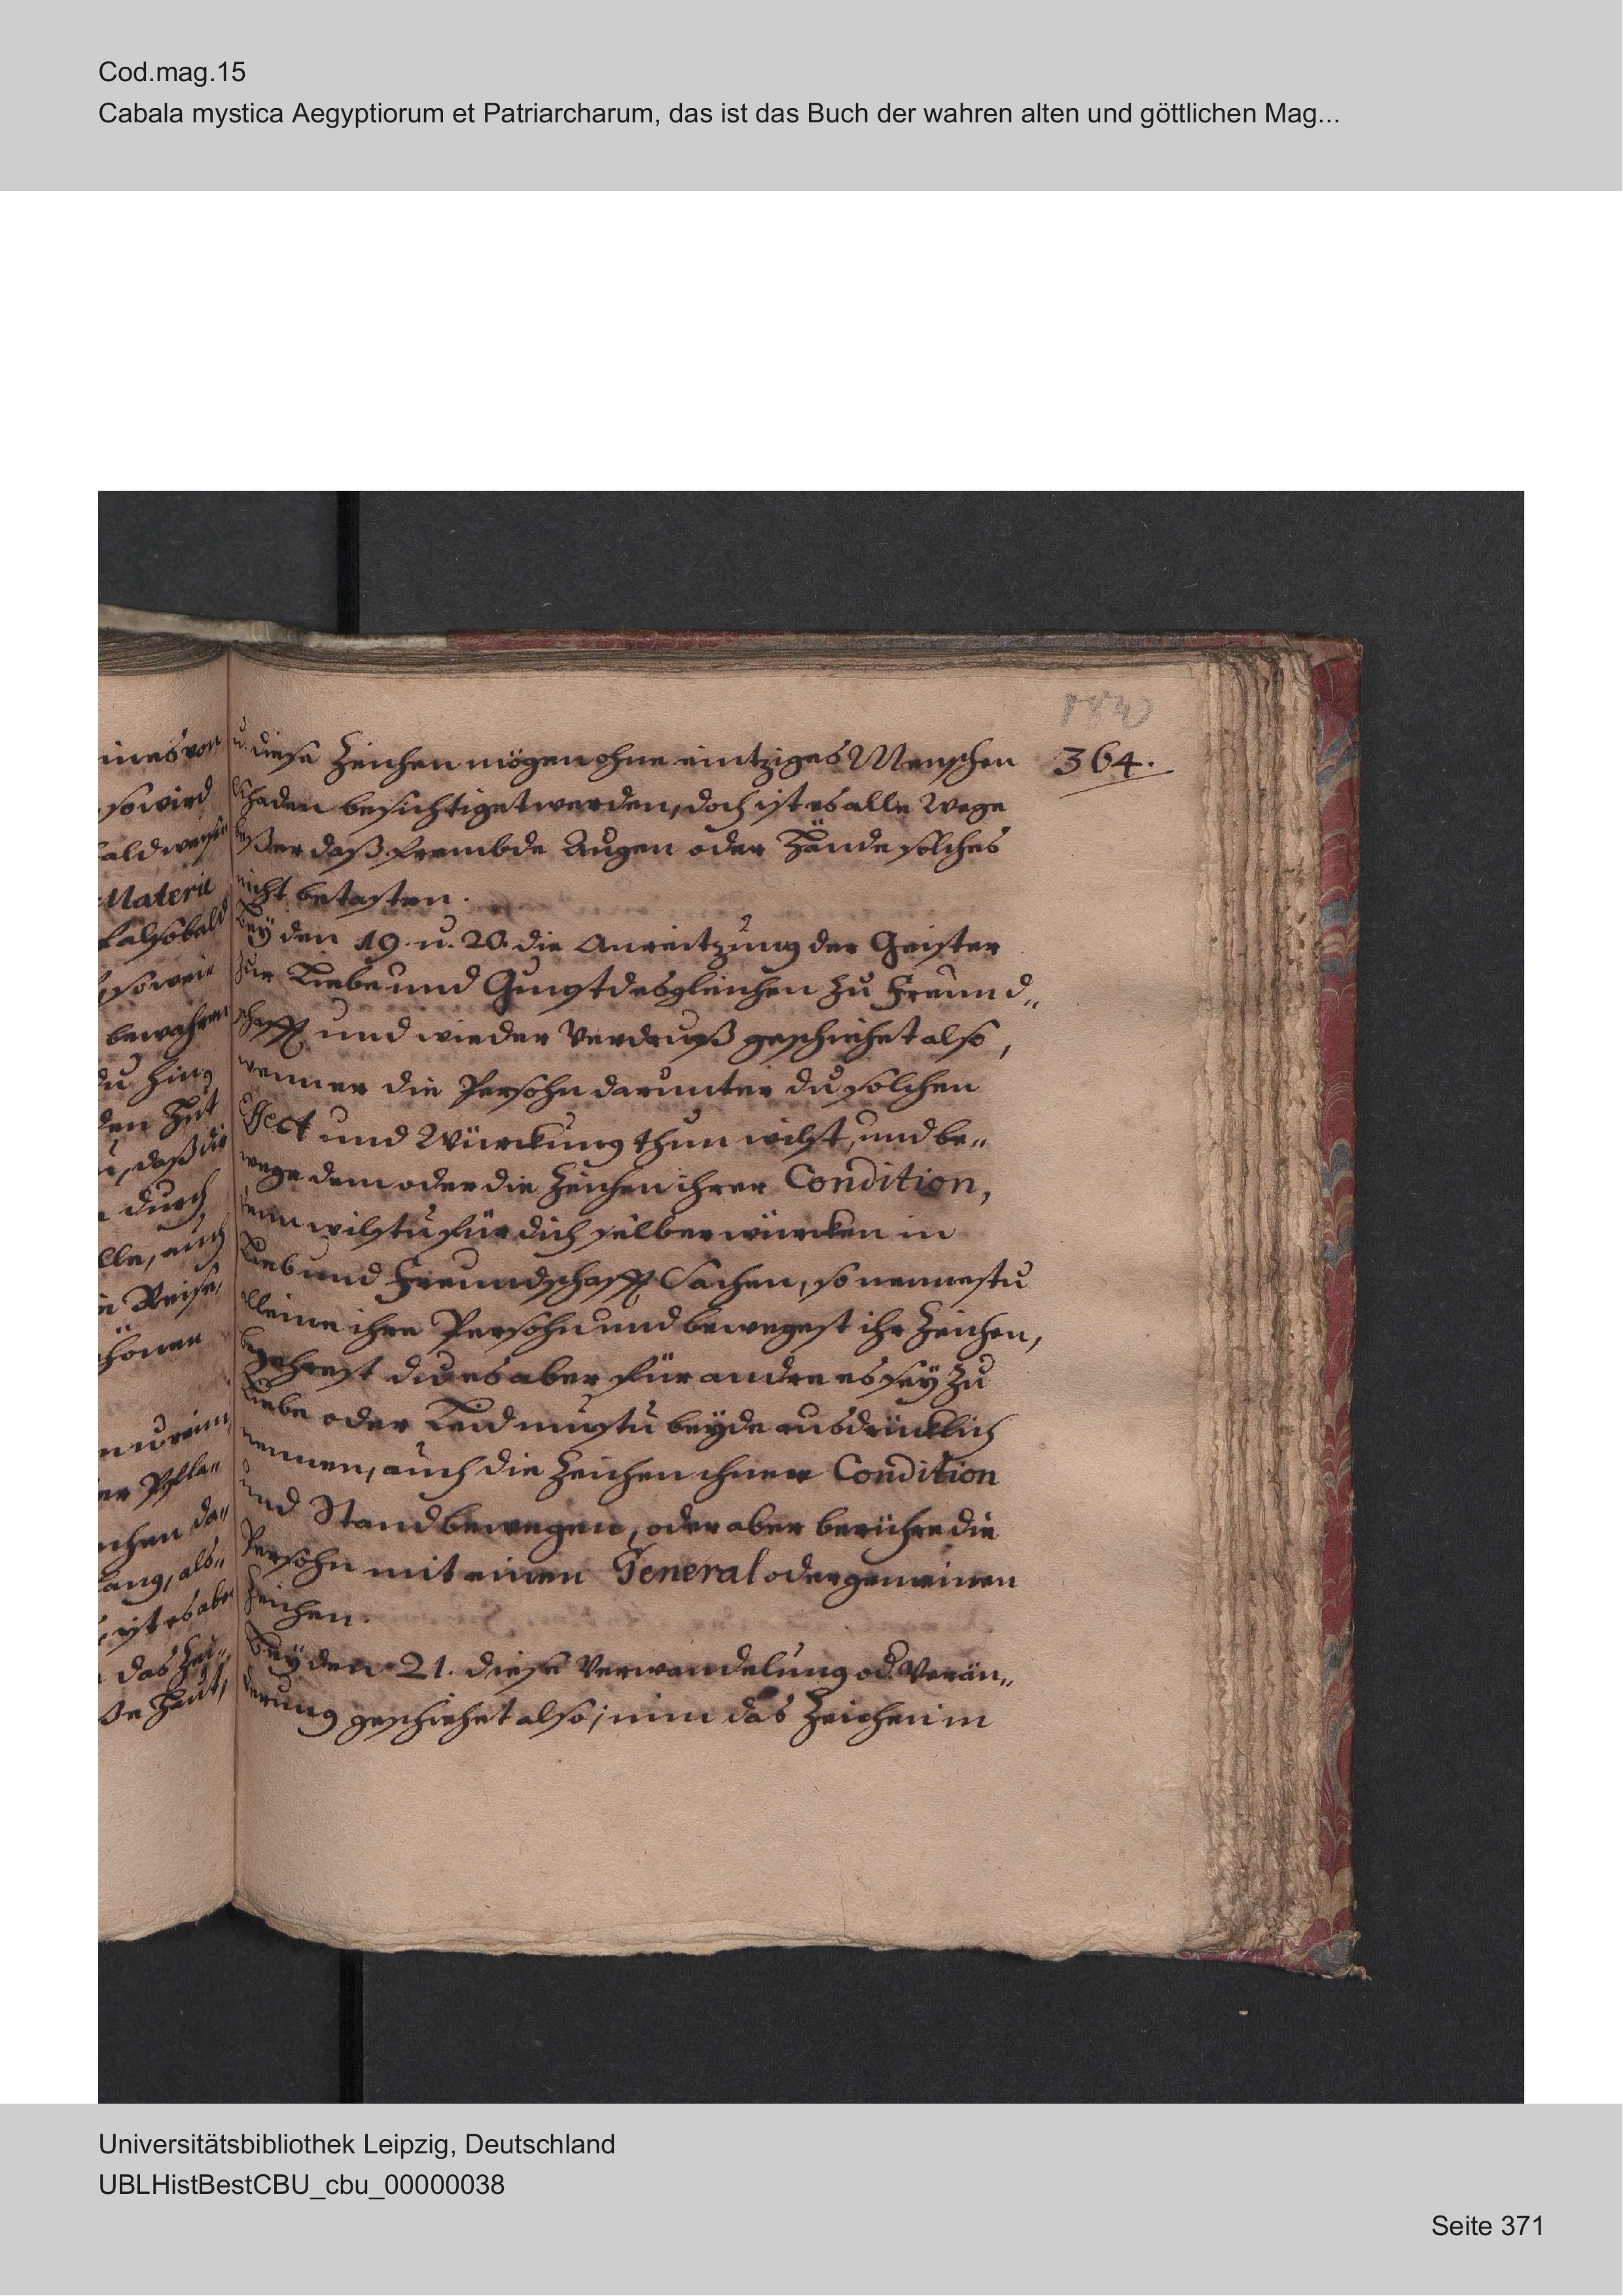 Cod.mag.15
Cabala mystica Aegyptiorum et Patriarcharum, das ist das Buch der wahren alten und göttlichen Mag...
364.
u. diese Zeichen mögen ohne eintziges Menschen
schaden besichtiget werden, doch ist es alle Wege
beßer daß frembde Augen oder Hände solches
nicht betasten.
Bey den 19. u. 20. die Anreitzung der Geister
zur Liebe und Gunst desgleichen zu Freund„
schafft und wieder Verdruß geschiehet also,
nenner die Persohn darunter du solchen
Effect und Würckung thun wilst, und be„
wege dem oder die Zeichen ihrer Condition,
denn wilstu für dich selber würcken in
Lieb und Freundschafft Sachen, so nennestu
alleine ihre Persohn und bewegest ihr Zeichen,
begehrest du es aber für andre es sey zu
Liebe oder Leid mustu beyde ausdrücklich
nennen, auch die Zeichen ihrer Condition
und Stand bewegen, oder aber berühre die
Persohn mit einen General oder gemeinen
Zeichen.
Bey den 21. diese Verwandelung od. Verän„
derung geschiehet also; nim das Zeichen in
ines von
so wird
Materie
alsobald
so wie
bewahren
den Hut
, daß die
durch
lle, auch
Reise,
nur ein
chen da„
lang, als„
ist es aber
das Zei„
Haut,
Universitätsbibliothek Leipzig, Deutschland
UBLHistBestCBU_cbu_00000038
Seite 371